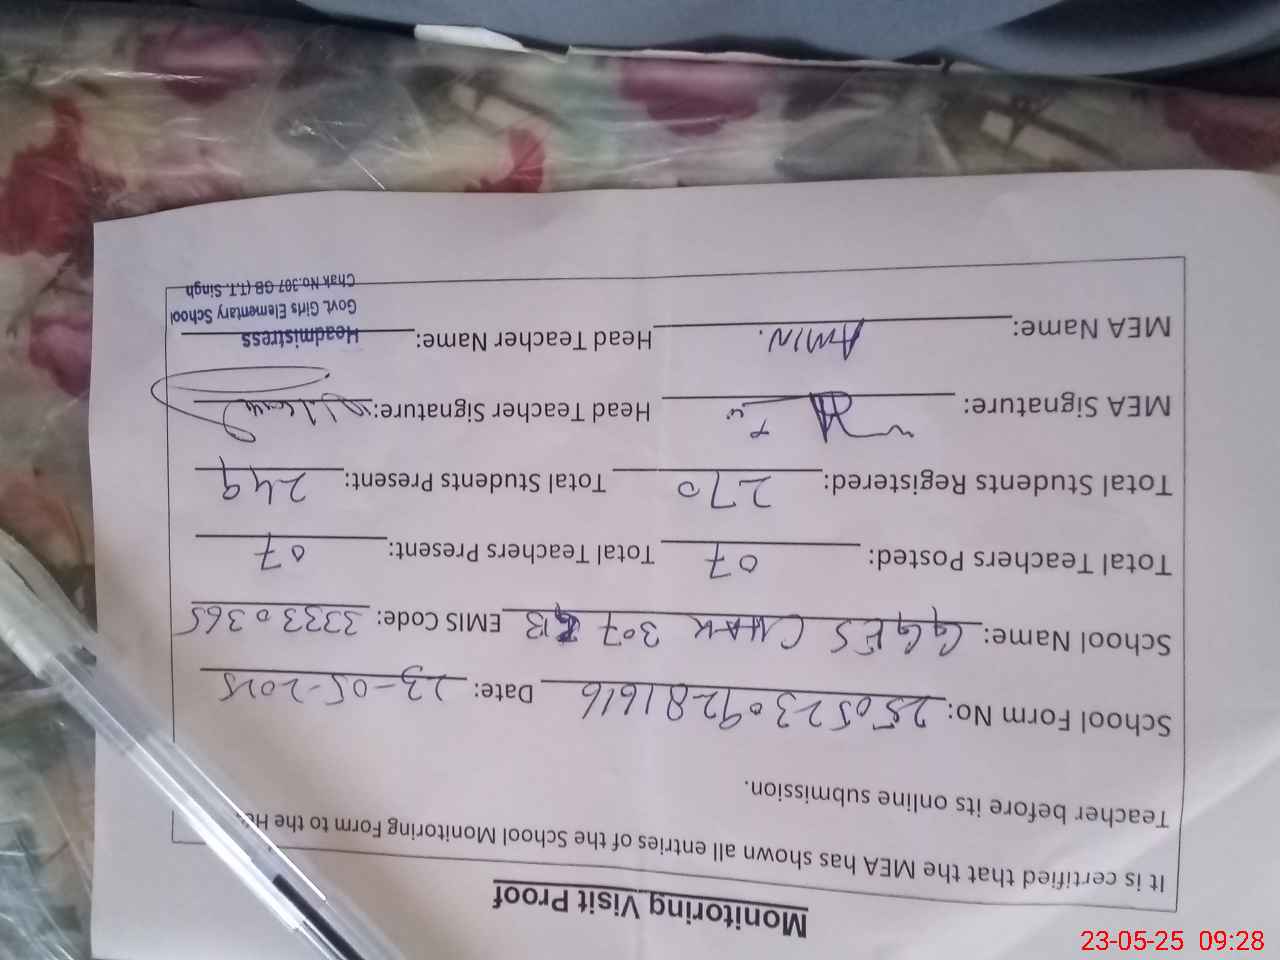 Monitoring Visit Proof
It is certified that the MEA has shown all entries of the School Monitoring Form to the
Teacher before its online submission.
School Form No: 25052309281616 Date: 23-05-2025
School Name: GGES CHAK 307 GB EMIS Code: 33330365
Total Teachers Posted: 07 Total Teachers Present: 07
Total Students Registered: 270 Total Students Present: 249
MEA Signature: Head Teacher Signature:
MEA Name: AMIN. Head Teacher Name: Headmistress
Govt. Girls Elementary School
Chak No.307 GB (T.T. Singh
23-05-25 09:28